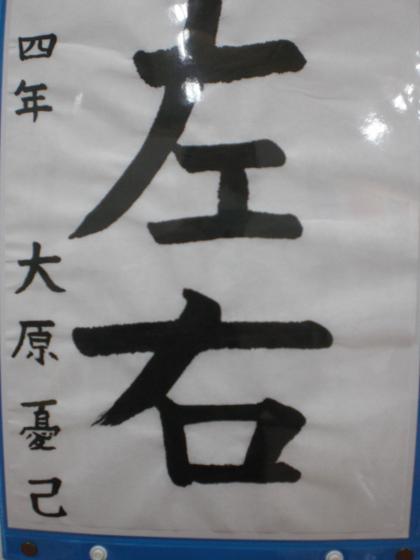 左右
四年 大原憂己